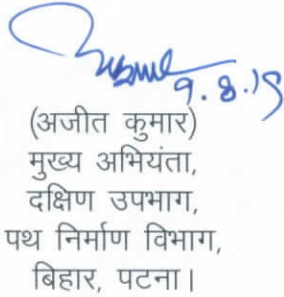 9.8.19
(अजीत कुमार)
मुख्य अभियंता,
दक्षिण उपभाग,
पथ निर्माण विभाग,
बिहार, पटना।